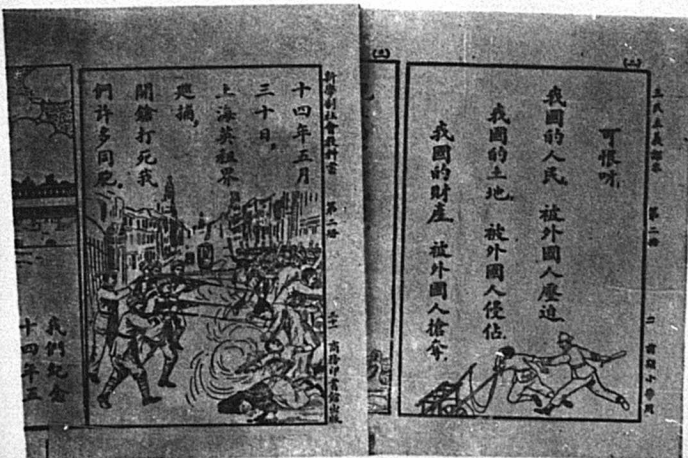 (二)
三民主義課本 第二冊 二 前期小學用
可恨呀,
我國的人民,被外國人壓迫,
我國的土地,被外國人侵佔,
我國的財產,被外國人搶奪,
新學制社會教科書 第二冊 商務印書館出版
十四年五月
三十日,
上海英租界
巡捕,
開鎗打死我
們許多同胞。
我們紀念
十四年五